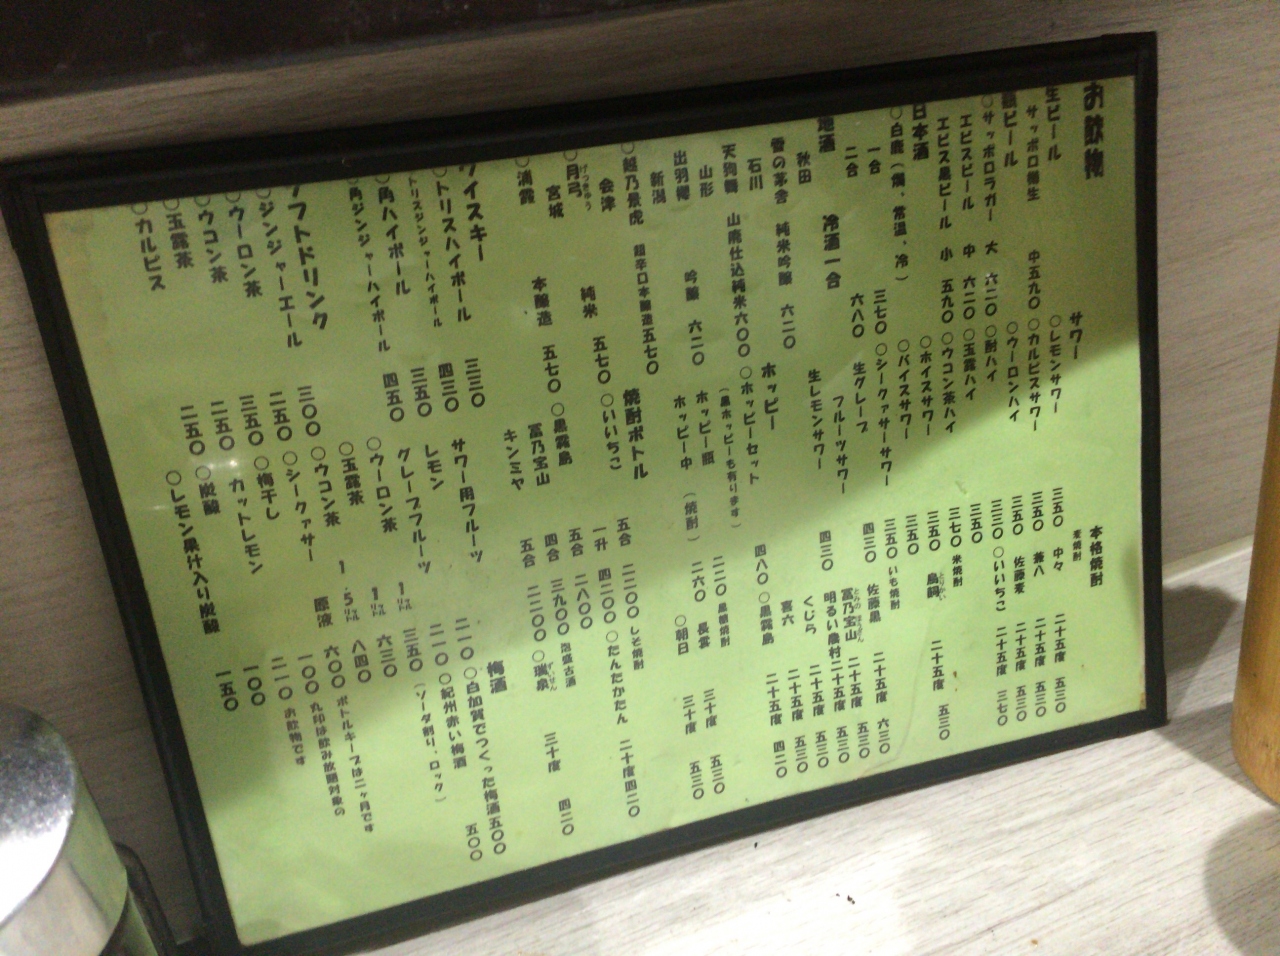 お飲物
生ビール
サッポロ樽生 中五九〇
瓶ビール
○サッポロラガー 大 六二〇
エビスビール 中 六二〇
エビス黒ビール 小 五九〇
日本酒
○白鹿(燗、常温、冷)
一合 三七〇
二合 六八〇
地酒 冷酒一合
秋田
雪の茅舎 純米吟醸 六二〇
石川
天狗舞 山廃仕込純米六〇〇
山形
出羽桜 吟醸 六二〇
新潟
○越乃景虎 超辛口本醸造五七〇
会津
○月弓 純米 五七〇
宮城
○浦霞 本醸造 五七〇
ウイスキー
○トリスハイボール 三二〇
トリスジンジャーハイボール 四三〇
○角ハイボール 三五〇
角ジンジャーハイボール 四五〇
ソフトドリンク
○ジンジャーエール 三〇〇
○ウーロン茶 二五〇
○ウコン茶 三五〇
○玉露茶 二五〇
○カルピス 二五〇
サワー
○レモンサワー 三五〇
○カルピスサワー 三五〇
○ウーロンハイ 三五〇
○酎ハイ 三二〇
○玉露ハイ 三五〇
○ウコン茶ハイ 三七〇
○ホイスサワー 三五〇
○バイスサワー 三五〇
○シークァサーサワー 三五〇
生グレープ
フルーツサワー 四三〇
生レモンサワー 四三〇
ホッピー
○ホッピーセット 四八〇
(黒ホッピーも有ります)
ホッピー瓶 二二〇
ホッピー中(焼酎) 二六〇
焼酎ボトル
○いいちこ 五合 二二〇〇
一升 四二〇〇
○黒霧島 五合 二八〇〇
富乃宝山 四合 三九〇〇
キンミヤ 五合 二二〇〇
サワー用フルーツ
レモン 二一〇
グレープフルーツ 二一〇
○ウーロン茶 1リットル 三五〇
○玉露茶 1リットル 六三〇
○ウコン茶 1.5リットル 八四〇
○シークァサー 原液 六〇〇
○梅干し 一〇〇
カットレモン 二一〇
○炭酸 一〇〇
○レモン果汁入り炭酸 一五〇
本格焼酎
麦焼酎
中々 二十五度 五三〇
兼八 二十五度 五三〇
佐藤麦 二十五度 五三〇
○いいちこ 二十五度 三七〇
米焼酎
鳥飼 二十五度 五三〇
いも焼酎
佐藤黒 二十五度 六三〇
富乃宝山 二十五度 五三〇
明るい農村 二十五度 五三〇
くじら 二十五度 五三〇
喜六 二十五度 五三〇
○黒霧島 二十五度 四二〇
黒糖焼酎
長雲 三十度 五三〇
○朝日 三十度 五三〇
しそ焼酎
○たんたかたん 二十度四二〇
泡盛古酒
○瑞泉 三十度 四二〇
梅酒
○白加賀でつくった梅酒五〇〇
○紀州赤い梅酒 五〇〇
(ソーダ割り、ロック)
ボトルキープは二ヶ月です
丸印は飲み放題対象の
お飲物です